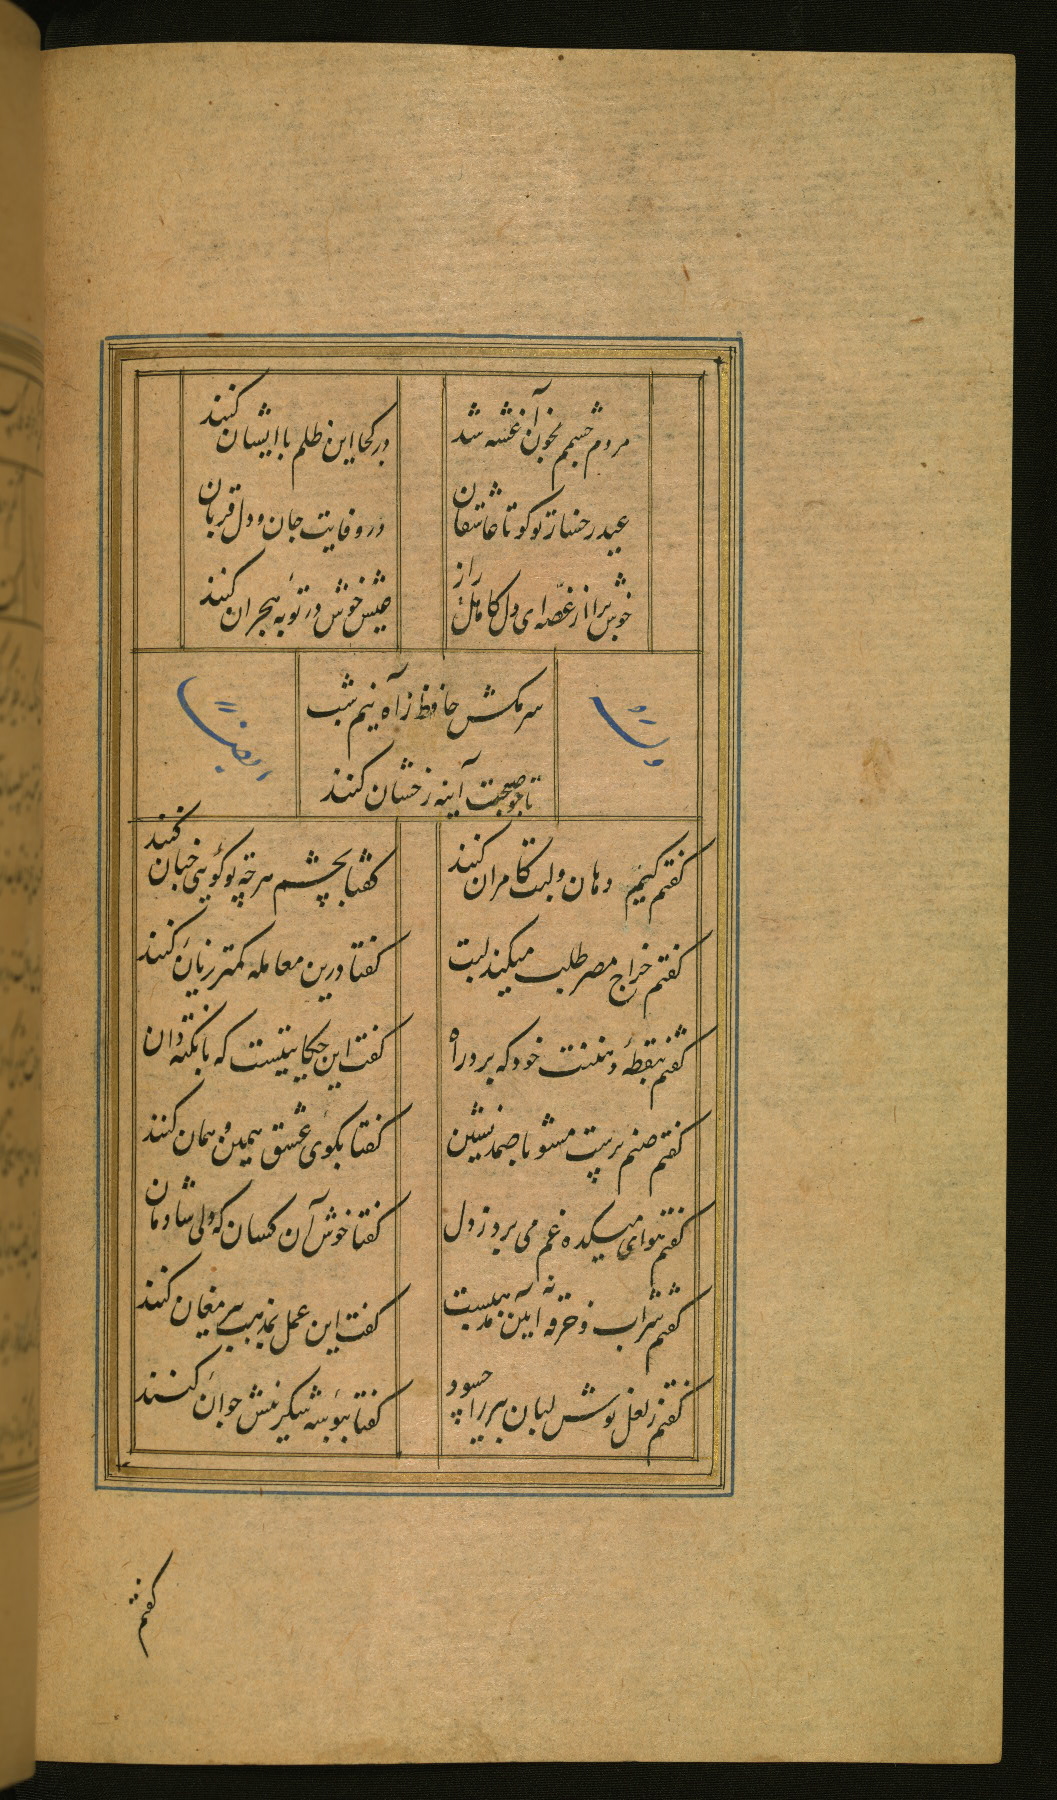 مردم چشمم بخون آغشته شد در کجا این ظلم با ایشان کنند
عید رخسار تو کو تا عاشقان در وفایت جان و دل قربان کنند
خوش برآ از غصه ای دل کاهل راز عیش خوش در بوته هجران کنند
سر مکش حافظ ز آه نیم شب
تا چو صبحت آینه رخشان کنند
وله ایضا
گفتم کیم دهان و لبت کامران کنند گفتا بچشم هرچه تو گویی چنان کنند
گفتم خراج مصر طلب میکند لبت گفتا درین معامله کمتر زیان کنند
گفتم بنقطه دهنت خود که برد راه گفت این حکایتیست که با نکته دان
گفتم صنم پرست مشو با صمد نشین گفتا بکوی عشق همین و همان کنند
گفتم هوای میکده غم می برد ز دل گفتا خوش آن کسان که دلی شادمان
گفتم شراب و خرقه نه آیین مذهبست گفت این عمل بمذهب پیر مغان کنند
گفتم ز لعل نوش لبان پیر را چه سود گفتا ببوسه شکرینش جوان کنند
گفتم